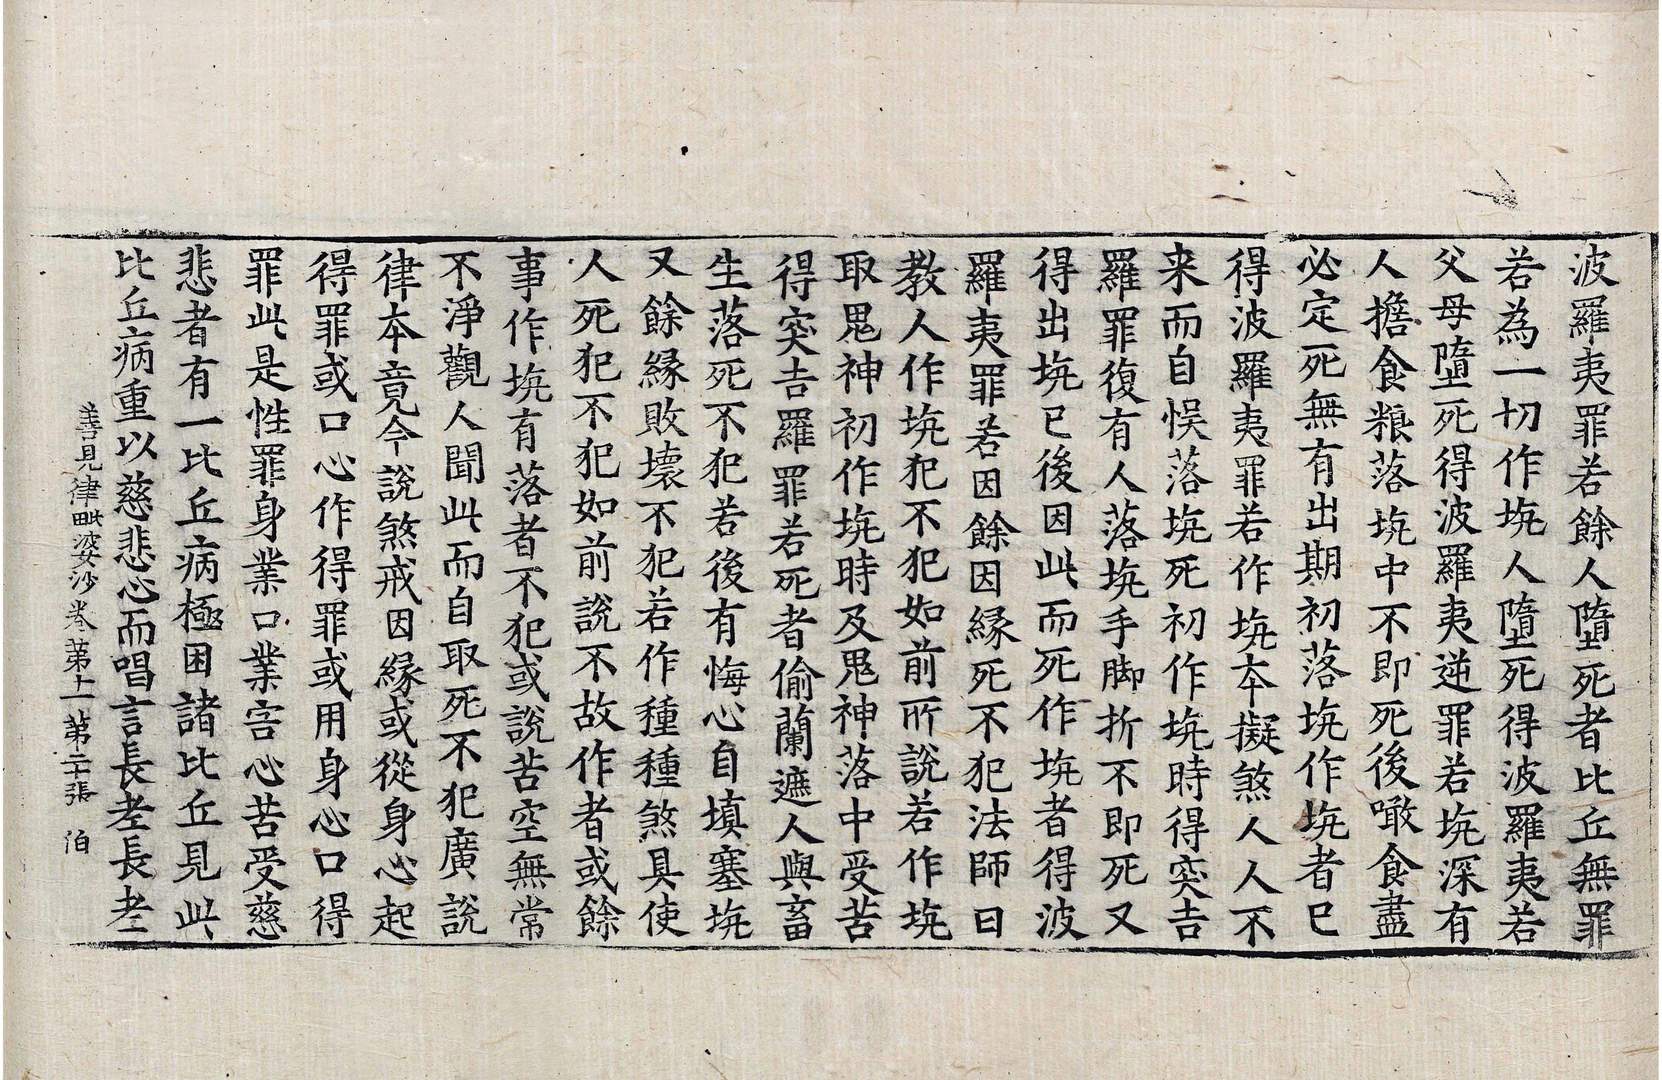 波羅夷罪若餘人墮死者比丘無罪
若為一切作坑人墮死得波羅夷若
父母墮死得波羅夷逆罪若坑深有
人擔食粮落坑中不即死後噉食盡
必定死無有出期初落坑作坑者已
得波羅夷罪若作坑本擬煞人人不
来而自悞落坑死初作坑時得突吉
羅罪復有人落坑手脚折不即死又
得出坑已後因此而死作坑者得波
羅夷罪若因餘因緣死不犯法師曰
教人作坑犯不犯如前所說若作坑
取鬼神初作坑時及鬼神落中受苦
得突吉羅罪若死者偷蘭遮人與畜
生落死不犯若後有悔心自填塞坑
又餘緣敗壞不犯若作種種煞具使
人死犯不犯如前說不故作者或餘
事作坑有落者不犯或說苦空無常
不淨觀人聞此而自取死不犯廣說
律本竟今說煞戒因緣或從身心起
得罪或口心作得罪或用身心口得
罪此是性罪身業口業害心苦受慈
悲者有一比丘病極困諸比丘見此
比丘病重以慈悲心而唱言長老長老
善見律毗婆沙卷第十一 第二十張 伯